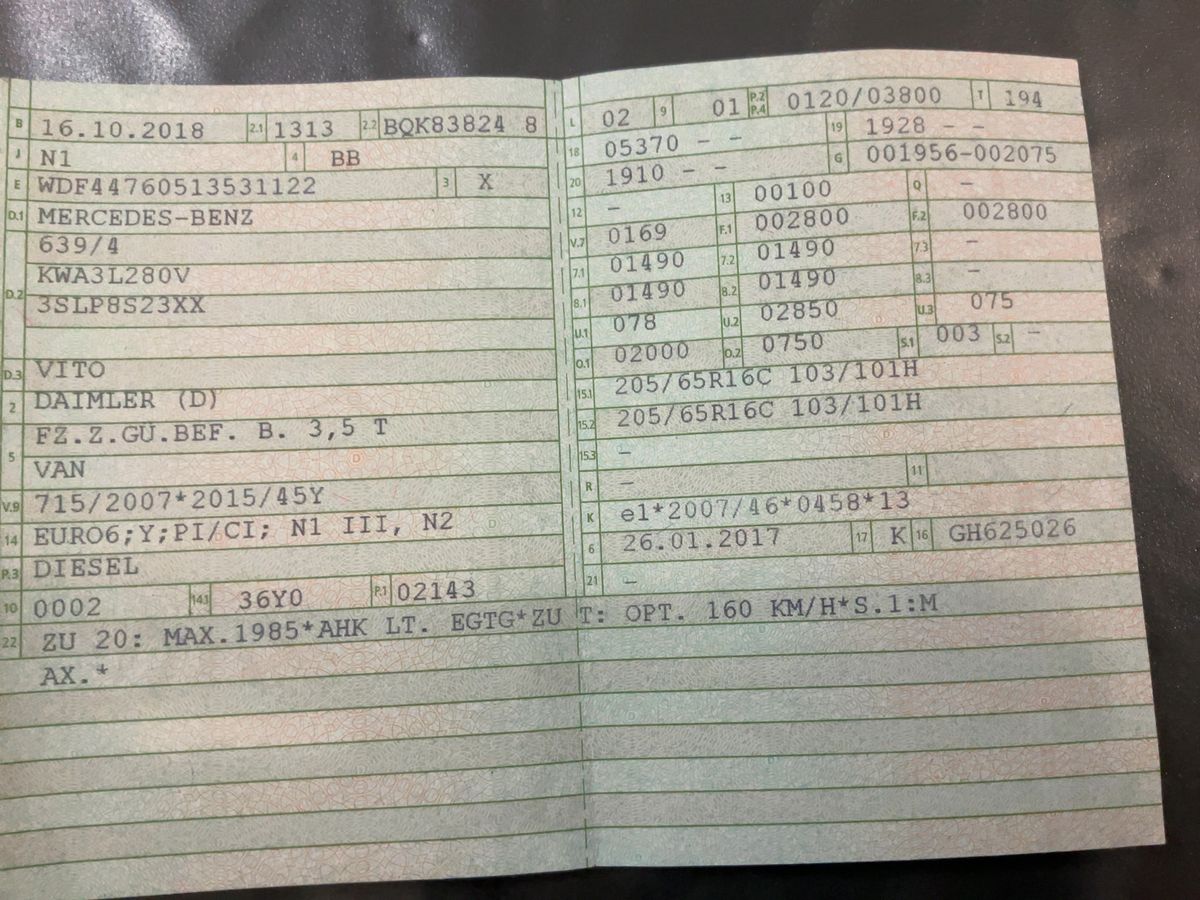 B 16.10.2018 2.1 1313 2.2 BQK83824 8
J N1 4 BB
E WDF44760513531122 3 X
D.1 MERCEDES-BENZ
639/4
D.2 KWA3L280V
3SLP8S23XX
D.3 VITO
2 DAIMLER (D)
FZ.Z.GÜ.BEF. B. 3,5 T
5 VAN
V.9 715/2007*2015/45Y
14 EURO6;Y;PI/CI; N1 III, N2
P.3 DIESEL
10 0002 14.1 36Y0 P.1 02143
L 02 9 01 P.2 P.4 0120/03800 T 194
18 05370 – – 19 1928 – –
20 1910 – – G 001956-002075
12 – 13 00100 Q –
V.7 0169 F.1 002800 F.2 002800
7.1 01490 7.2 01490 7.3 –
8.1 01490 8.2 01490 8.3 –
U.1 078 U.2 02850 U.3 075
O.1 02000 O.2 0750 S.1 003 S.2 –
15.1 205/65R16C 103/101H
15.2 205/65R16C 103/101H
15.3 –
R – 11
K e1*2007/46*0458*13
6 26.01.2017 17 K 16 GH625026
21 –
22 ZU 20: MAX.1985*AHK LT. EGTG*ZU T: OPT. 160 KM/H*S.1:M
AX.*